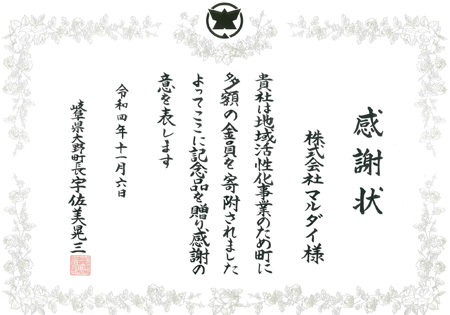 感謝状
株式会社マルダイ様
貴社は地域活性化事業のため町に
多額の金員を寄附されました
よってここに記念品を贈り感謝の
意を表します
令和四年十一月六日
岐阜県大野町長宇佐美晃三